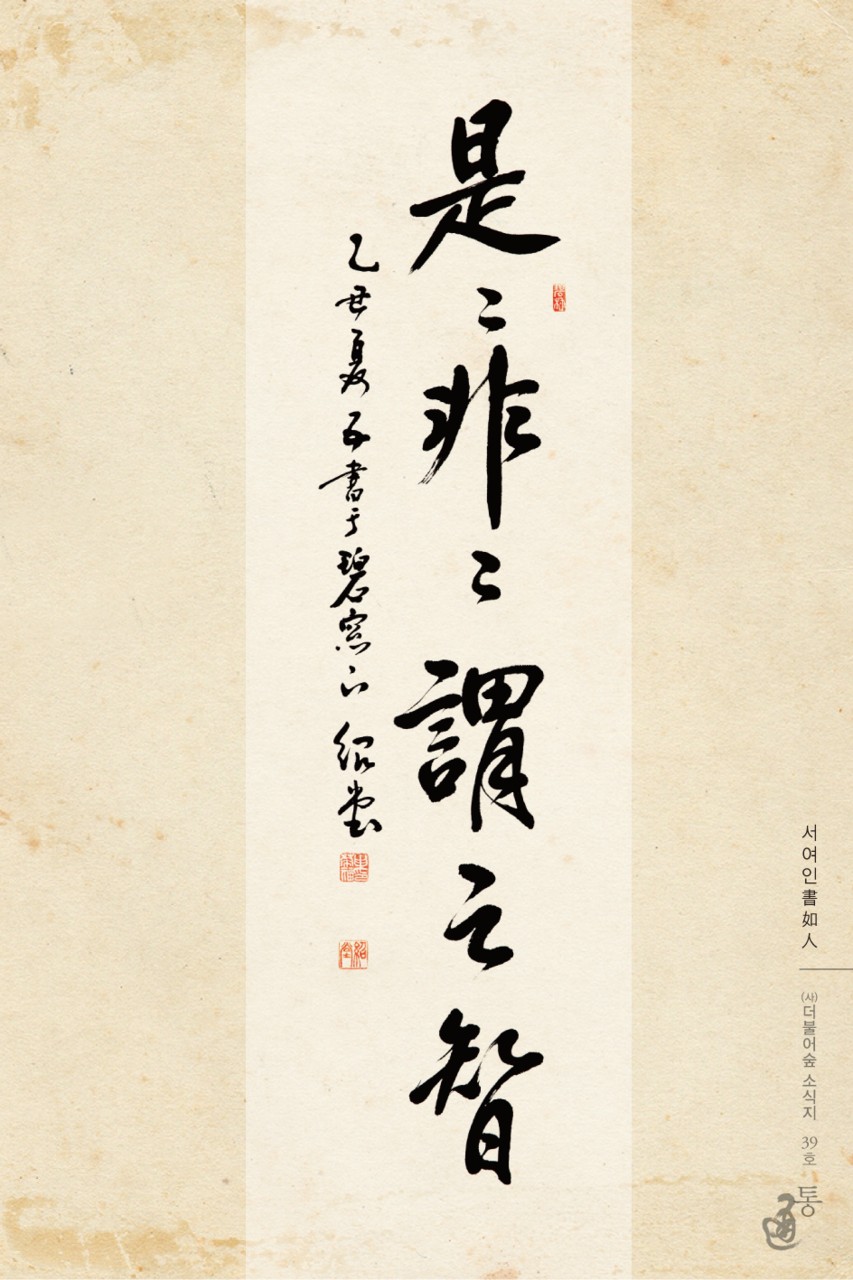 是〻非〻謂之智
乙丑夏五書于碧窓下 紹堂
서여인書如人
(사)더불어숲 소식지 39호
통
通